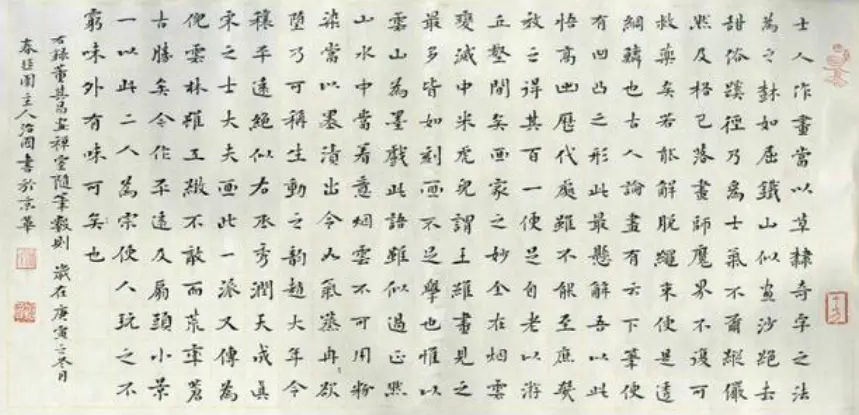 士人作畫當以草隸奇字之法
為之樹如屈鐵山似畫沙絕去
甜俗蹊徑乃為士氣不爾縱儼
然及格已落畫師魔界不復可
救藥矣若能解脫繩束便是透
網鱗也古人論畫有云下筆便
有凹凸之形此最懸解吾以此
悟高出歷代處雖不能至庶幾
效之得其百一便足自老以游
丘壑間矣畫家之妙全在烟雲
變滅中米虎兒謂王維畫見之
最多皆如刻畫不足學也惟以
雲山為墨戲此語雖似過正然
山水中當著意烟雲不可用粉
染當以墨漬出令如氣蒸冉欲
墮乃可稱生動之韵趙大年令
穰平遠絕似右丞秀潤天成真
宋之士大夫畫此一派又傳為
倪雲林雖工緻不敵而荒率蒼
古勝矣今作平遠及扇頭小景
一以此二人為宗使人玩之不
窮味外有味可矣也
右錄董其昌畫禪室隨筆數則 歲在庚寅之冬月
春園主人治國書於京華